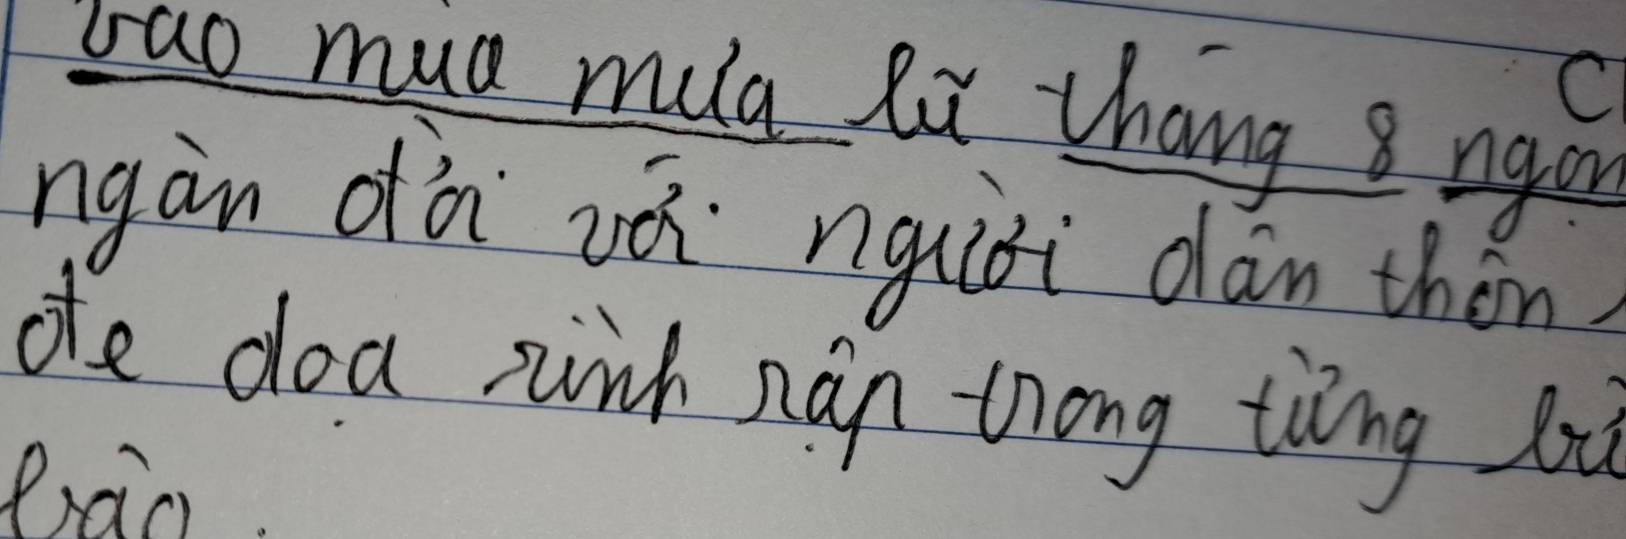 vào mùa mưa lũ tháng 8 ngọn
ngàn đời với người dân thôn
đe doạ rình rập trong từng
bào.